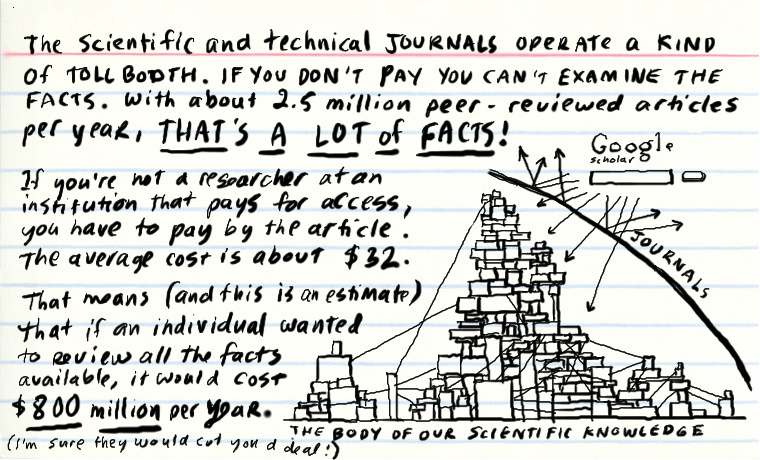 The Scientific and technical JOURNALS OPERATE a KIND
Of TOLL BOOTH. IF YOU DON'T PAY YOU CAN'T EXAMINE THE
FACTS. With about 2.5 million peer-reviewed articles
per year, THAT'S A LOT of FACTS!
Google
scholar
If you're not a researcher at an
institution that pays for access,
you have to pay by the article.
The average cost is about $32.
JOURNALS
That means (and this is an estimate)
that if an individual wanted
to review all the facts
available, it would cost
$800 million per year.
(I'm sure they would cut you a deal!)
THE BODY OF OUR SCIENTIFIC KNOWLEDGE